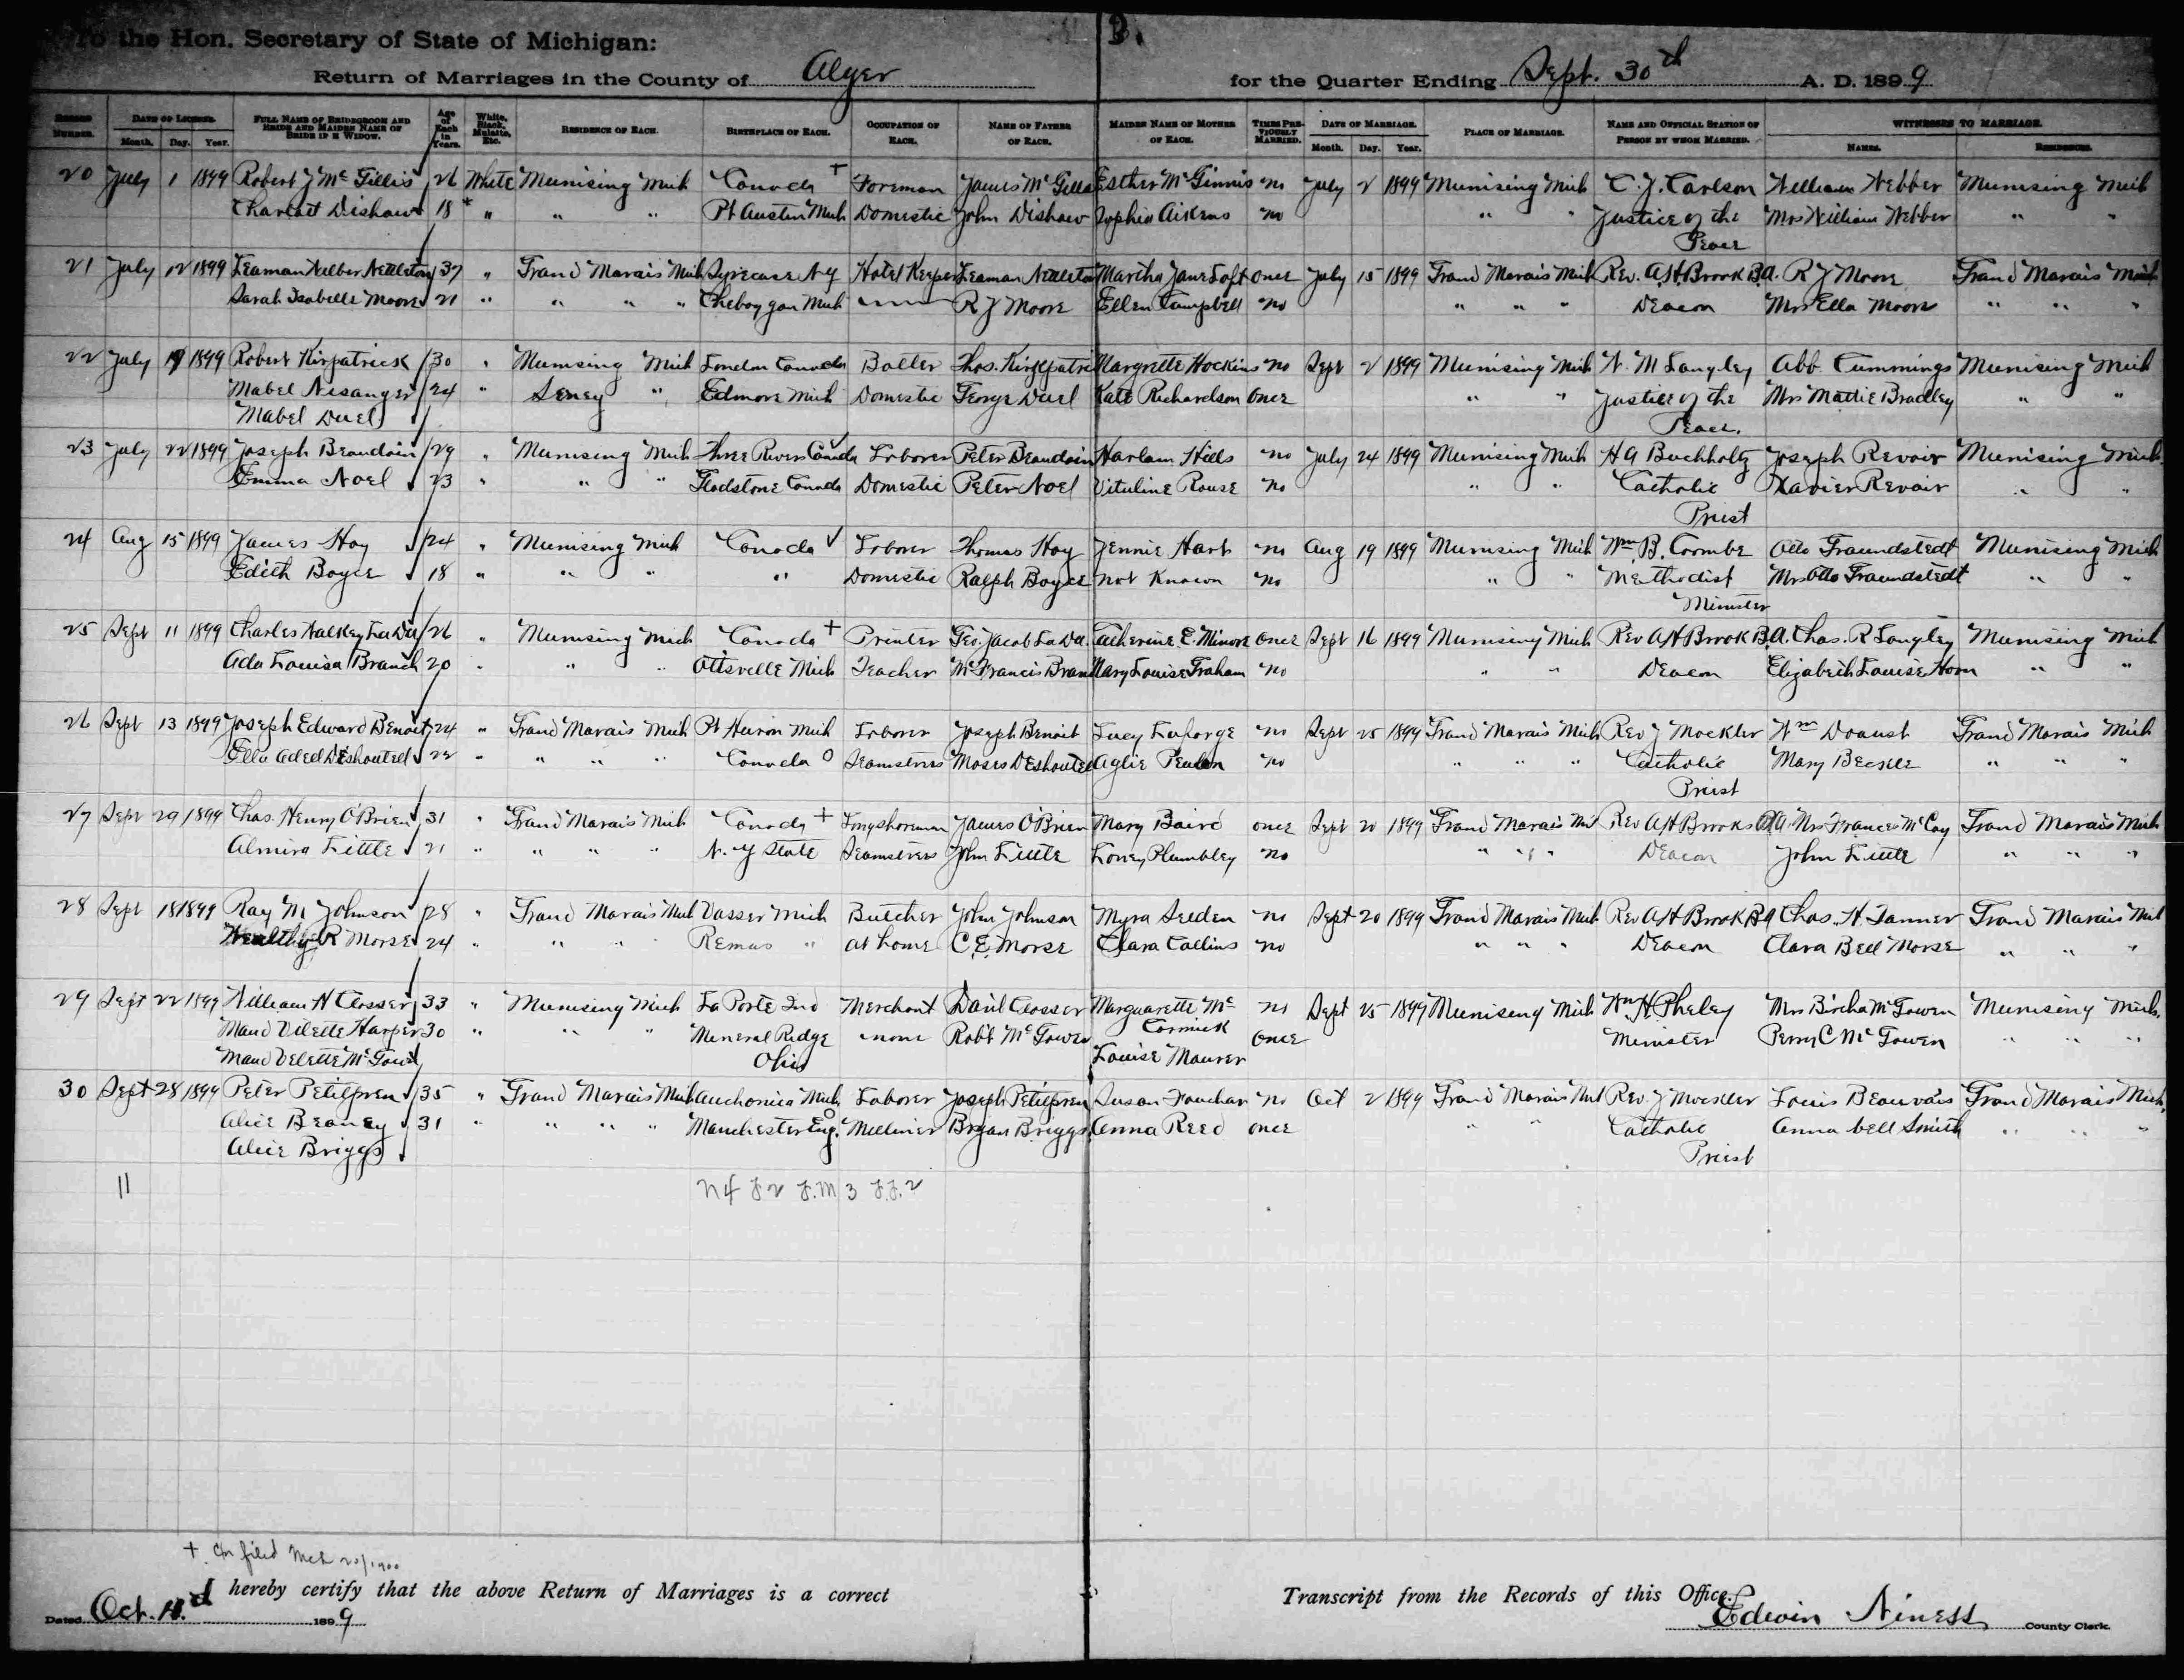 To the Hon. Secretary of State of Michigan:
Return of Marriages in the County of Alger for the Quarter Ending Sept. 30th A. D. 1899
Record Number. Date of License. Month. Day. Year. Full Name of Bridegroom and Bride and Maiden Name of Bride if a Widow. Age of Each in Years. White, Black, Mulatto, Etc. Residence of Each. Birthplace of Each. Occupation of Each. Name of Father of Each. Maiden Name of Mother of Each. Times Previously Married. Date of Marriage. Month. Day. Year. Place of Marriage. Name and Official Station of Person by whom Married. Witnesses to Marriage. Names. Residences.
20 July 1 1899 Robert J McGillis 26 White Munising Mich Canada + Foreman James McGillis Esther McGinnis no July 2 1899 Munising Mich C. J. Carlson William Webber Munising Mich
Dishaw 18 * " " " Pt Austin Mich Domestic John Dishaw Sophia Aikens no " " Justice of the Mrs William Webber " "
Peace
21 July 12 1899 Leaman Wilber Nettleton 37 " Grand Marais Mich Syrecuse N Y Hotel Keeper Leaman Nettleton Martha Jane Loft once July 15 1899 Grand Marais Mich Rev. A. H. Brook B.A. R J Moore Grand Marais Mich
Sarah Isabelle Moore 21 " " " " Cheboygan Mich R J Moore Ellen Campbell no " " " Deacon Mrs Ella Moore " " "
22 July 19 1899 Robert Kirpatrick 30 " Munising Mich London Canada Thos. Kirkpatric Margrette Hockins no Sept 2 1899 Munising Mich W. M Langley Abb Cummings Munising Mich
Mabel Nesanger 24 " Seney " Edmore Mich Domestic George Duel Kate Richardson once " " Justice of the Mrs Mattie Bradley " "
Mabel Duel Peace.
23 July 22 1899 Joseph Beaudoin 29 " Munising Mich Three Rivers Canada Laborer Peter Beaudoin Harlam Hills no July 24 1899 Munising Mich H A Buchholtz Joseph Revoir Munising Mich
Emma Noel 23 " " " Gladstone Canada Domestic Peter Noel Vituline Rouse no " " Catholic Xavier Revoir " "
Priest
24 Aug 15 1899 James Hoy 24 " Munising Mich Canada Laborer Thomas Hoy Jennie Hart no Aug 19 1899 Munising Mich Wm B. Coombe Otto Fraundstedt Munising Mich
Edith Boyce 18 " " " " Domestic Ralph Boyce not Known no " " Methodist Mrs Otto Fraundstedt " "
Minister
25 Sept 11 1899 Charles Walkey LaDu 26 " Munising Mich Canada + Printer Geo. Jacob LaDu Catherine E. Minore once Sept 16 1899 Munising Mich Rev A H Brook B.A. Chas. R Langley Munising Mich
Ada Louisa Branch 20 " " " Ottsville Mich Teacher Mc Francis Branch Mary Louise Graham no " " Deacon Elizabeth Louise Horn " "
26 Sept 13 1899 Joseph Edward Benoit 24 " Grand Marais Mich Pt Huron Mich Laborer Joseph Benoit Lucy Laforge no Sept 25 1899 Grand Marais Mich Rev J Mockler Wm Doaust Grand Marais Mich
Ella Adell Deshoutell 22 " " " " Canada Seamstress Moses Deshoutell Aglie no " " " Catholic Mary " " "
Priest
27 Sept 29 1899 Chas. Henry O'Brien 31 " Grand Marais Mich Canada + Longshoreman James O'Brien Mary Baird once Sept 20 1899 Grand Marais Mich Rev A H Brooks Mrs Frances McCoy Grand Marais Mich
Almira Little 21 " " " " N. Y State Seamstress John Little Loney Plumbley no " " " Deacon John Little " " "
28 Sept 18 1899 Ray M Johnson 28 " Grand Marais Mich Vasser Mich Butcher John Johnson Myra Seeden no Sept 20 1899 Grand Marais Mich Rev A H Brook B A Chas. H. Tanner Grand Marais Mich
Wealthy R Morse 24 " " " Remus " at home C. E. Morse Clara Collins no " " " Deacon Clara Bell Morse " " "
29 Sept 22 1899 William H Closser 33 " Munising Mich La Porte Ind Merchant Danil Closser Marguarette Mc no Sept 25 1899 Munising Mich Wm H. Pheley Mrs Birdia McGowen Munising Mich.
Maud Velette Harper 30 " " " Meneral Ridge none Robt McGowen Cormick once Minister Perry C McGowen " " "
Maud Velette McGowen Ohio Louise Maurer
30 Sept 28 1899 Peter Petitpren 35 " Grand Marais Mich Mich Laborer Joseph Petitpren Susan no Oct 2 1899 Grand Marais Mich Rev. J Mockler Louis Beauvais Grand Marais Mich.
Alice Beaney 31 " " " " Manchester Eng. Milliner Bryan Briggs Anna Reed once " " Catholic Anna bell Smith " " "
Alice Briggs Priest
11 N 4 F 2 F.M 3 F.F. 2
+ filed Mch 20/1900
I hereby certify that the above Return of Marriages is a correct Transcript from the Records of this Office.
Dated Oct. 1899 Edwin Niness County Clerk.